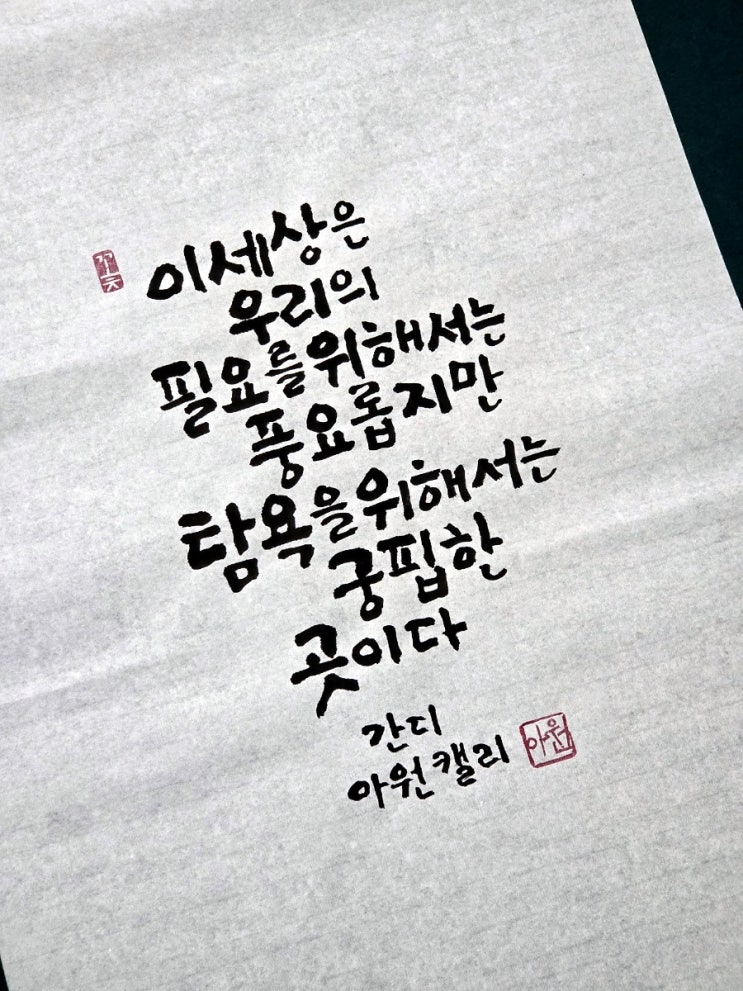 이세상은
우리의
필요를 위해서는
풍요롭지만
탐욕을 위해서는
궁핍한
곳이다
간디
아원캘리
아원